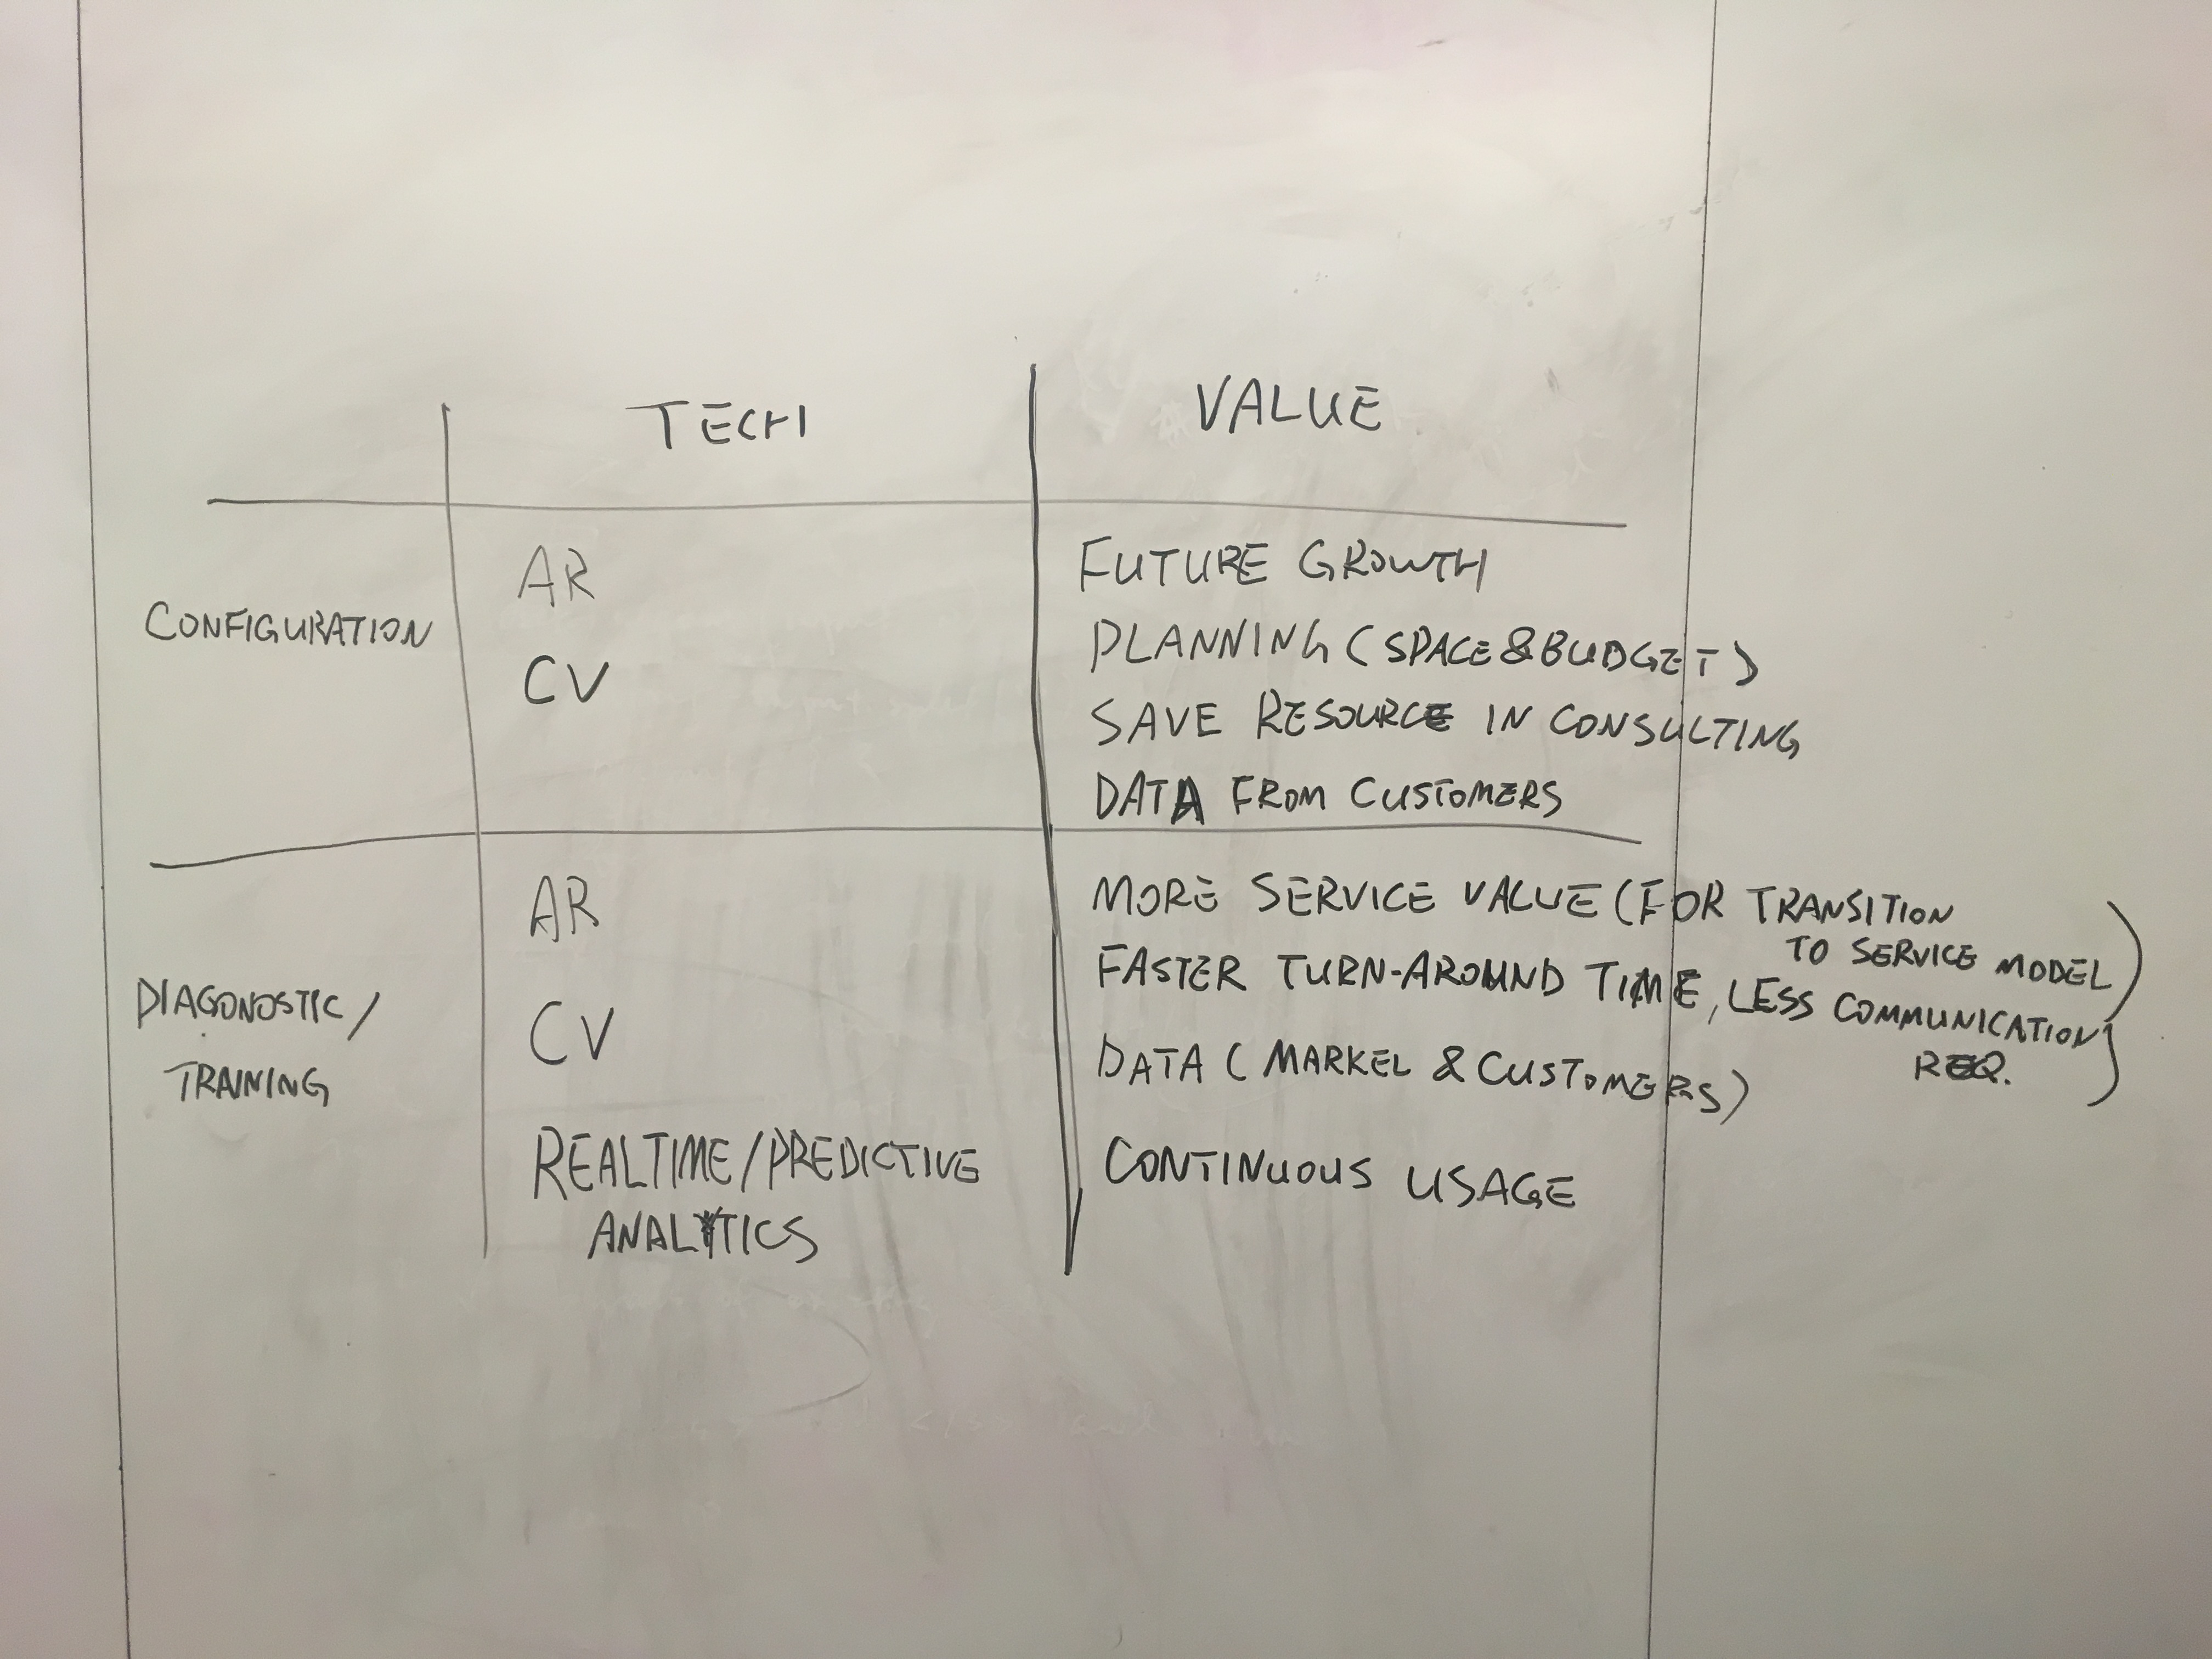 TECH VALUE
CONFIGURATION
AR
CV
FUTURE GROWTH
PLANNING (SPACE & BUDGET)
SAVE RESOURCE IN CONSULTING
DATA FROM CUSTOMERS
DIAGONOSTIC/
TRAINING
AR
CV
REALTIME/PREDICTIVE
ANALYTICS
MORE SERVICE VALUE (FOR TRANSITION
TO SERVICE MODEL)
FASTER TURN-AROUND TIME, LESS COMMUNICATION
REQ.
DATA (MARKEL & CUSTOMERS)
CONTINUOUS USAGE